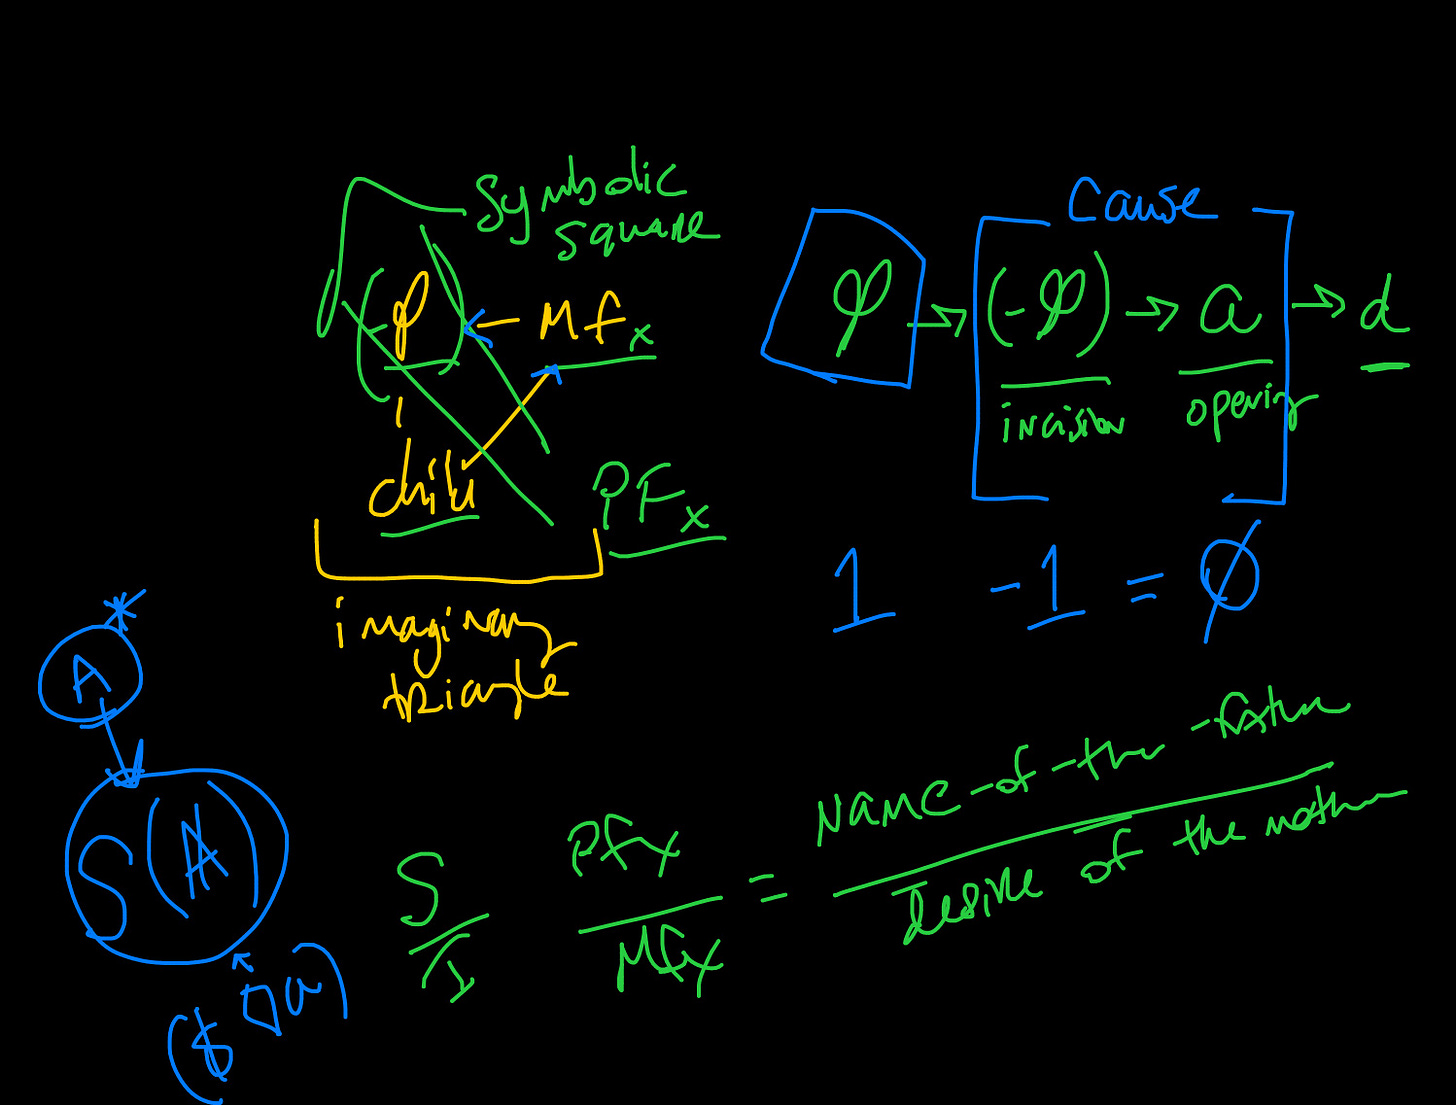 Symbolic
square
(-φ) ← Mfx
child
PFx
imaginary
triangle
Cause
φ → (-φ) → a → d
incision
opening
1 -1 = Ø
A
S(Ⱥ)
($ ◊ a)
S
I
PFx
Mfx
=
Name-of-the-father
desire of the mother